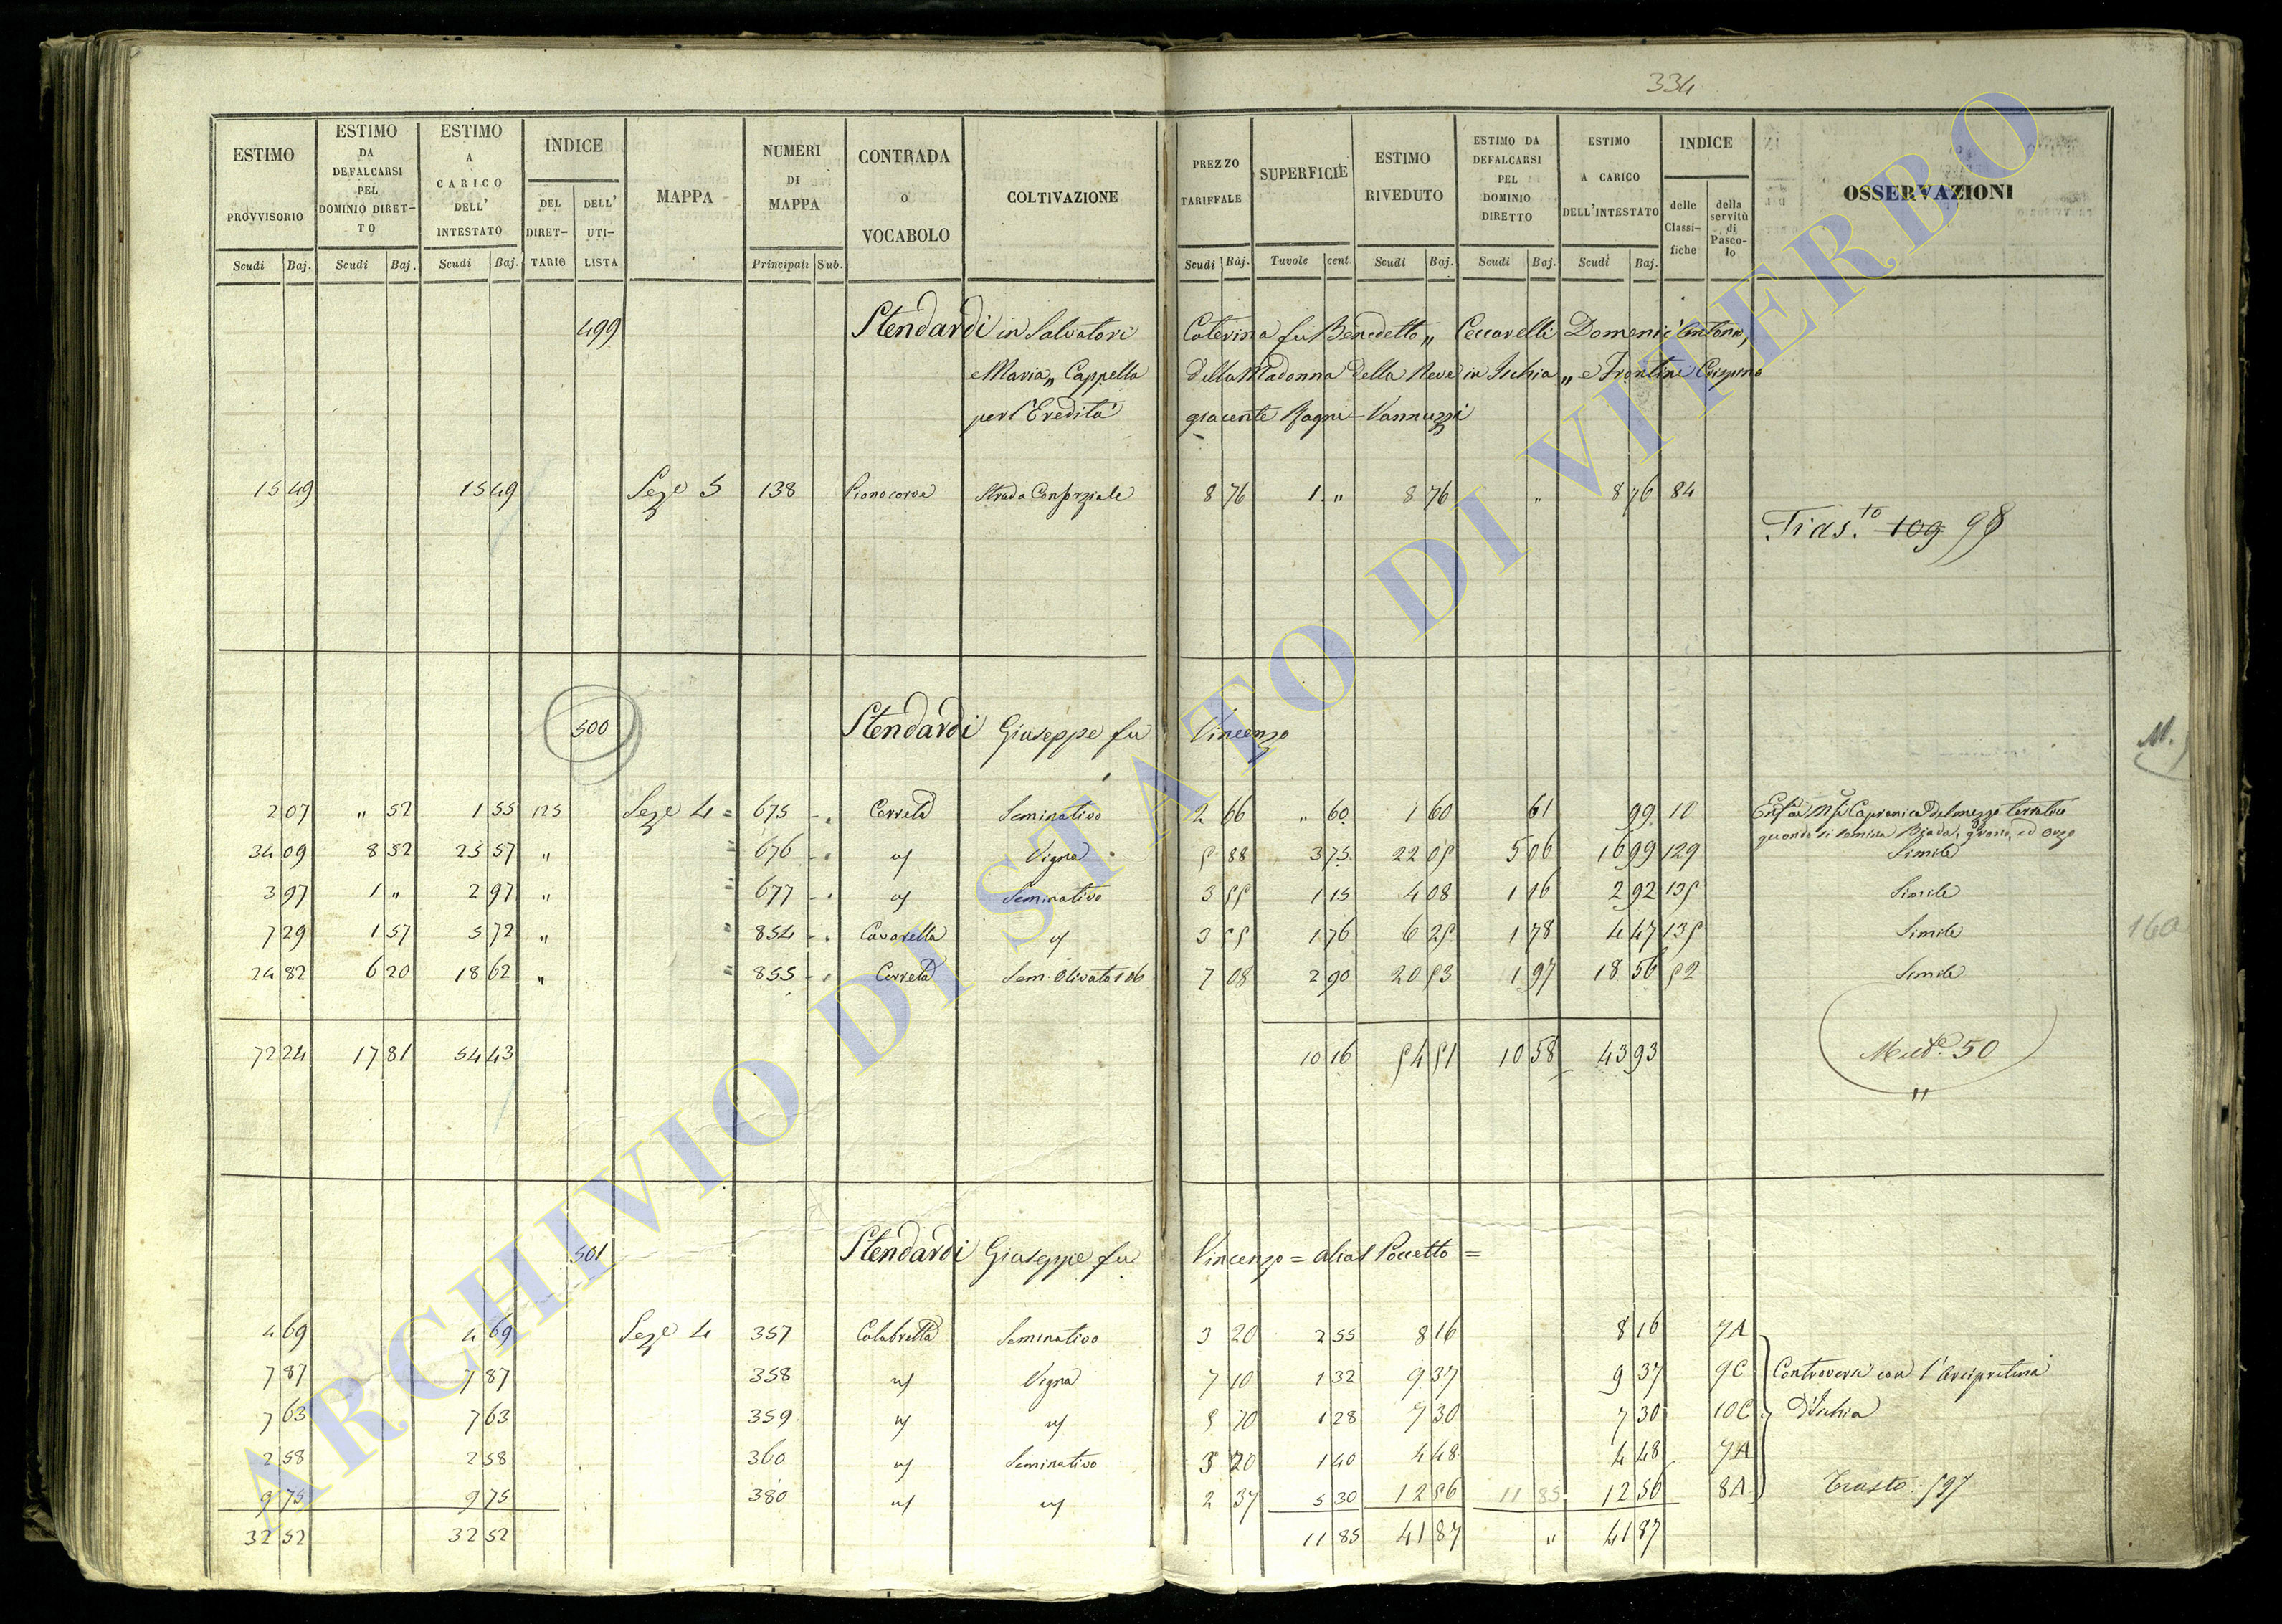 334
ESTIMO PROVVISORIO Scudi Baj. | ESTIMO DA DEFALCARSI PEL DOMINIO DIRET- TO Scudi Baj. | ESTIMO A CARICO DELL' INTESTATO Scudi Baj. | INDICE DEL DIRET- TARIO DELL' UTI- LISTA | MAPPA | NUMERI DI MAPPA Principali Sub. | CONTRADA O VOCABOLO | COLTIVAZIONE | PREZZO TARIFFALE Scudi Baj. | SUPERFICIE Tuvole cent. | ESTIMO RIVEDUTO Scudi Baj. | ESTIMO DA DEFALCARSI PEL DOMINIO DIRETTO Scudi Baj. | ESTIMO A CARICO DELL'INTESTATO Scudi Baj. | INDICE delle Classi- fiche della servitù di Pasco- lo | OSSERVAZIONI
499 Stendardi in Salvatori Caterina fu Benedetto „ Ceccarelli Domenic'Antonio,
Maria„ Cappella della Madonna della Neve in Ischia „ e Frontini Crispino
per l'Eredità giacente Ragni-Vannuzzi
15 49 15 49 Seze 5 138 Pianocorve Strada Consorziale 8 76 1 „ 8 76 „ 8 76 84
Tras.to 109 98
500 Stendardi Giuseppe fu Vincenzo
M.
2 07 „ 52 1 55 125 Seze 4 = 675 Cerreta Seminativo 2 66 „ 60 1 60 61 99 10 Capranica del mezzo terratico
quando si semina Biada, grano, ed Orzo
34 09 8 52 25 57 „ = 676 Vigna 5 88 3 75 22 05 5 06 16 99 129 Simile
3 97 1 „ 2 97 „ = 677 Seminativo 3 55 1 15 4 08 1 16 2 92 135 Simile
7 29 1 57 5 72 „ = 854 Cavarella 3 55 1 76 6 25 1 78 4 47 135 Simile 160
24 82 6 20 18 62 „ = 855 Cerreta Sem. Olivato 106 7 08 2 90 20 53 1 97 18 56 52 Simile
72 24 17 81 54 43 10 16 54 51 10 58 43 93 50
"
501 Stendardi Giuseppe fu Vincenzo = alias Poccetto =
4 69 4 69 Seze 4 357 Calabretta Seminativo 3 20 2 55 8 16 8 16 7A
7 87 7 87 358 Vigna 7 10 1 32 9 37 9 37 9C Controversi con l'Arcipretura
7 63 7 63 359 5 70 1 28 7 30 7 30 10C d'Ischia
2 58 2 58 360 Seminativo 3 20 1 40 4 48 4 48 7A
9 75 9 75 380 2 37 5 30 12 56 11 85 12 56 8A Trasto 597
32 52 32 52 11 85 41 87 „ 41 87
ARCHIVIO DI STATO DI VITERBO